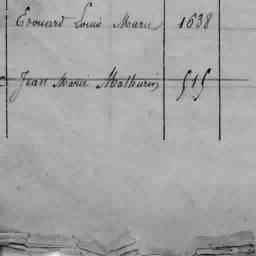 Edouard Louis Marie 1638
Jean Marie Mathurin 515